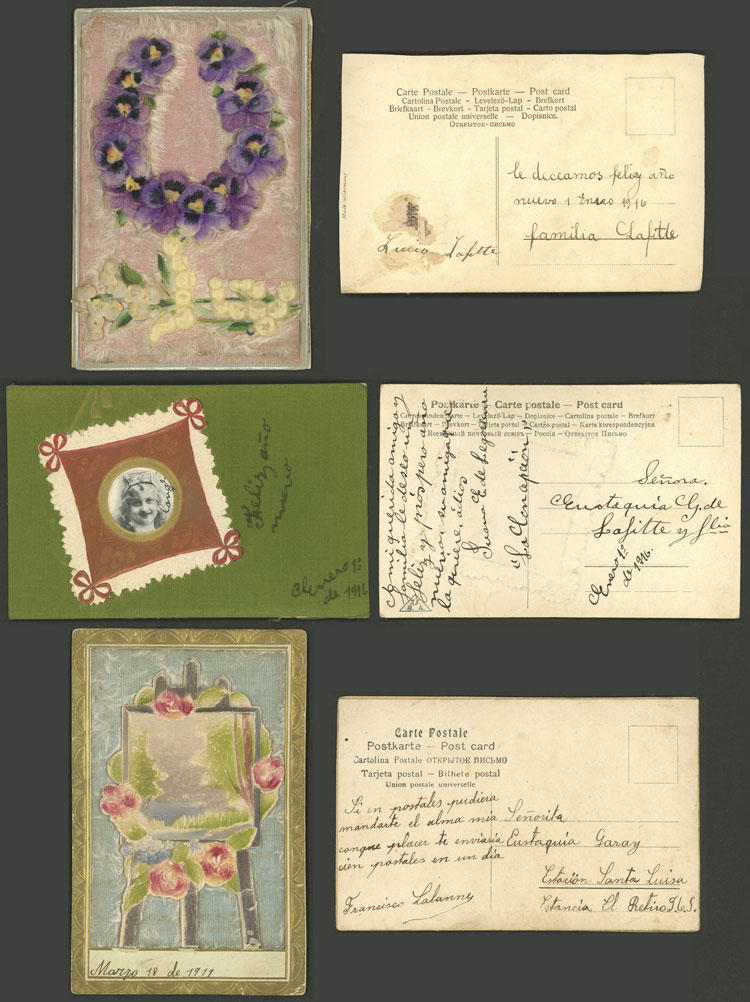 Carte Postale — Postkarte — Post card
Cartolina Postale - Levelező-Lap - Brefkort
Briefkaart - Brevkort - Tarjeta postal - Carto postal
Union postale universelle — Dopisnice.
Открытое-письмо
Made in Germany
le deceamos feliz año
nuevo 1 Enero 1916
familia Lafitte
Lucia Lafitte
Feliz año
nuevo
Enero 1º
de 1916
Postkarte — Carte postale — Post card
Correspondenzkarte — Levelező-Lap — Dopisnice — Cartolina postale — Brefkort
Briefkaart — Brevkort — Tarjeta postal — Cartão postal — Karta korespondencyjna
Всемірный почтовый союзъ — Россія — Открытое Письмо
A mi querida amiga y
familia le deseo un
feliz y próspero año
nuevo, su amiga que
la quiere, adios
Juana E. de Legorburu
"La Concepción"
Señora.
Eustaquia G. de
Lafitte y flia
Enero 1º
de 1916.
Carte Postale
Postkarte — Post card
Cartolina Postale ОТКРЫТОЕ ПИСЬМО
Tarjeta postal — Bilhete postal
Union postale universelle
Si en postales pudiera
mandarte el alma mia
conque placer te enviaria
cien postales en un dia
Francisco Lalanne
Señorita
Eustaquia Garay
Estación Santa Luisa
Estancia El Retiro F.C.S.
Marzo 18 de 1911